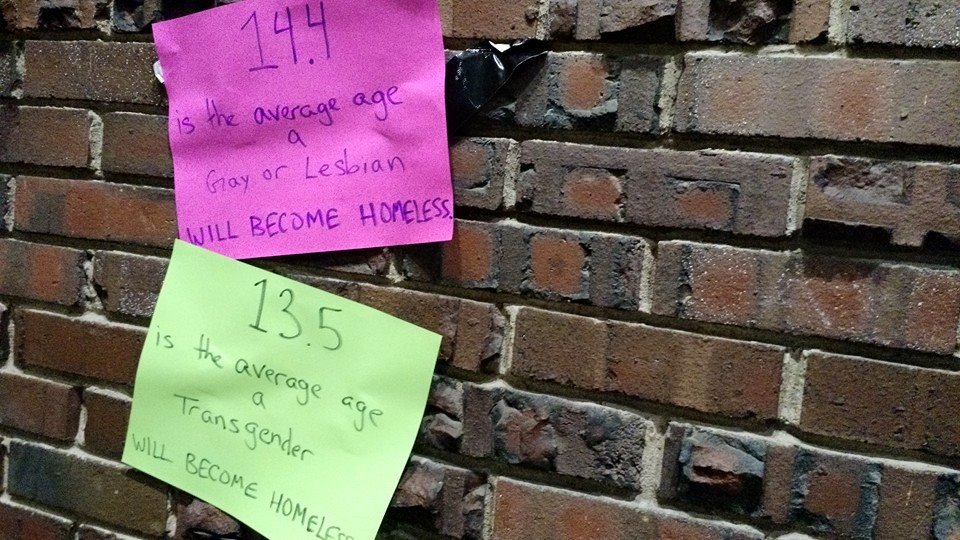 14.4
is the average age
a
Gay or Lesbian
WILL BECOME HOMELESS.
13.5
is the average age
a
Transgender
WILL BECOME HOMELESS